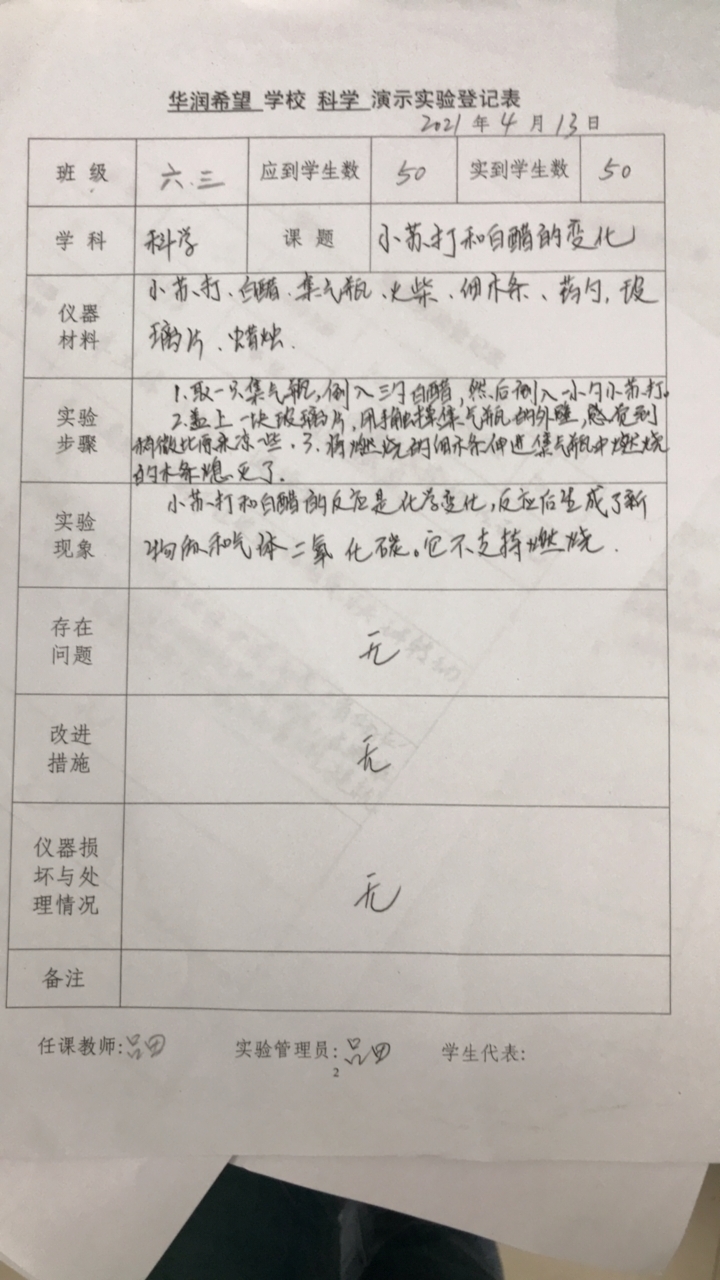 华润希望 学校 科学 演示实验登记表
2021 年 4 月 13 日
班 级 六.三 应到学生数 50 实到学生数 50
学 科 科学 课 题 小苏打和白醋的变化
仪器材料
小苏打、白醋、集气瓶、火柴、细木条、药勺、玻
璃片、蜡烛.
实验步骤
1.取一只集气瓶,倒入三勺白醋,然后倒入一小勺小苏打。
2.盖上一块玻璃片,用手触摸集气瓶的外壁,感觉到
稍微比原来凉一些.3.将燃烧的细木条伸进集气瓶中燃烧
的木条熄灭了.
实验现象
小苏打和白醋的反应是化学变化,反应后生成了新
物质和气体二氧化碳。它不支持燃烧.
存在问题
无
改进措施
无
仪器损坏与处理情况
无
备注
任课教师: 实验管理员: 学生代表:
2